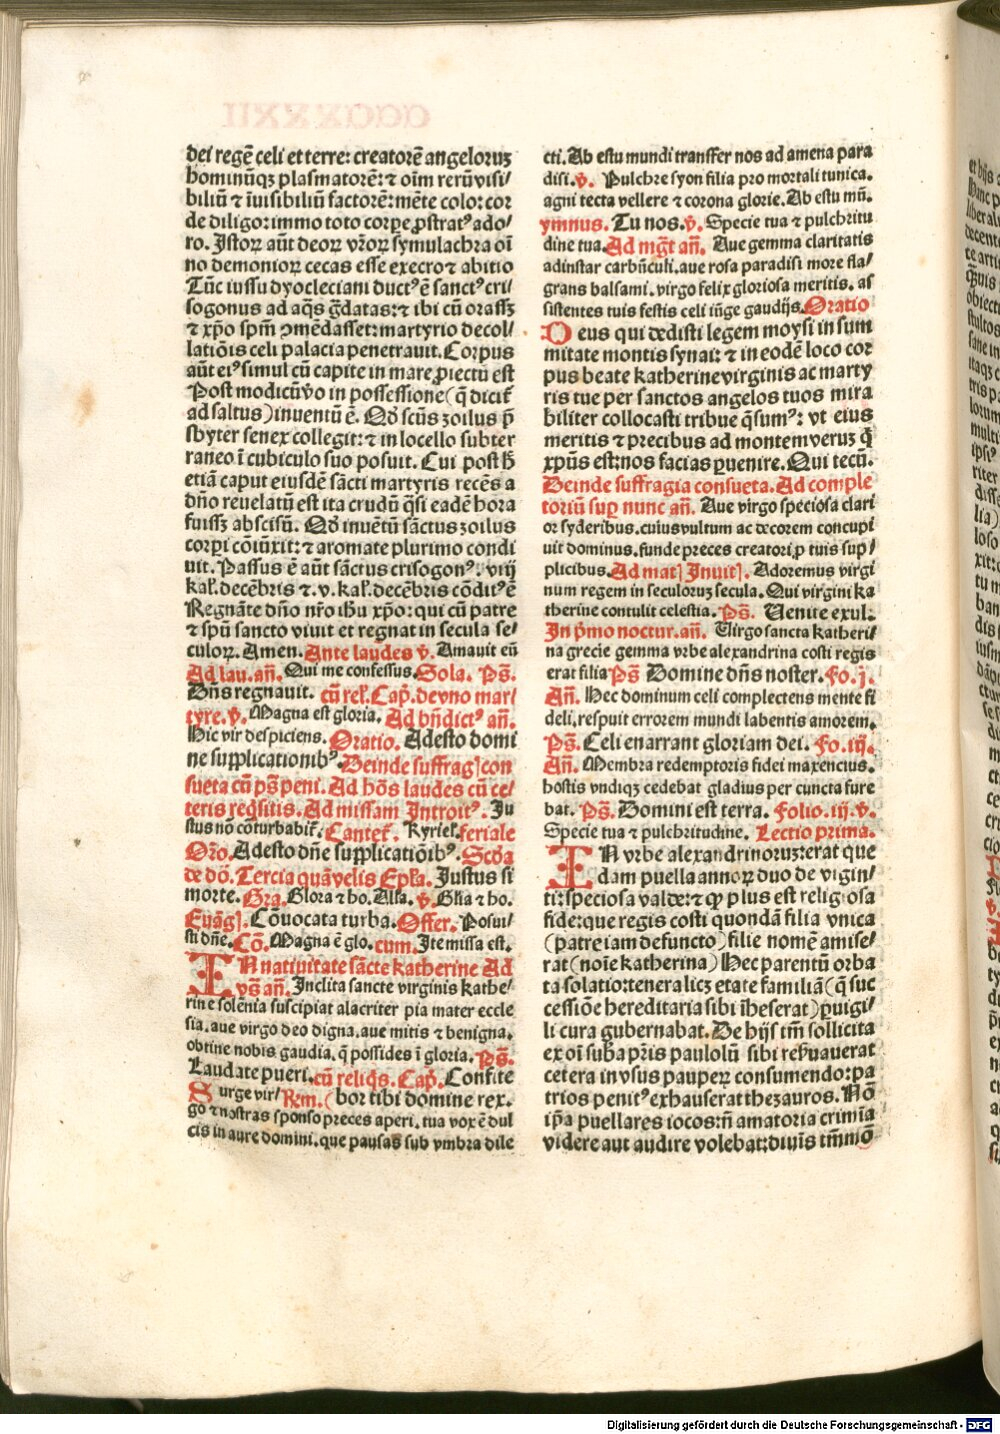 dei regē celi et terre: creatorē angelorumꝫ
hominūqꝫ plasmatorē: ⁊ oīm rerū visi⸗
biliū ⁊ īuisibiliū factorē: mēte colo: cor
de diligo: immo toto corpe ꝓstratꝰ ado⸗
ro. Istoꝝ aūt deoꝝ vr̄oꝝ symulachra oī
no demonioꝝ cecas esse execro ⁊ abitio
Tūc iussu dyocleciani ductꝰ ē sanctꝰ cri⸗
sogonus ad aq̄s grādatas: ⁊ ibi cū orassꝫ
⁊ xp̄o sp̄m ꝯmēdasset: martyrio decol⸗
latiōis celi palacia penetrauit. Corpus
aūt eiꝰ simul cū capite in mare ꝓiectū est
Post modicū vo in possessione (q̄ dicit᷑
ad saltus) inuentū ē. Qd̄ scūs zoilus p̄
sbyter senex collegit: ⁊ in locello subter
raneo ī cubiculo suo posuit. Cui post h̄
etiā caput eiusdē sācti martyris recēs a
dn̄o reuelatū est ita crudū q̄si eadē hora
fuissꝫ abscisū. Qd̄ inuētū sāctus zoilus
corpi cōiūxit: ⁊ aromate plurimo condi
uit. Passus ē aūt sāctus crisogonꝰ. viij
kal̄. decēbris ⁊ .v. kal̄. decēbris cōditꝰ ē
Regnāte dn̄o nr̄o ih̄u xp̄o: qui cū patre
⁊ spū sancto viuit et regnat in secula se⸗
culoꝝ. Amen. Ante laudes v̄. Amauit eū
Ad lau. an̄. Qui me confessus. Sola. Ps̄.
Dn̄s regnauit. cū rel̄. Cap̄. de vno mar⸗
tyre. v̄. Magna est gloria. Ad bn̄dictꝰ an̄.
Hic vir despiciens. Oratio. Adesto domi
ne supplicationibꝰ. Deinde suffragꝭ con
sueta cū ps̄ peni. Ad hōs laudes cū ce⸗
teris req̄sitis. Ad missam Introitꝰ. Iu
stus nō cōturbabit᷑. Cantet᷑. Kyriel. feriale
Or̄o. Adesto dn̄e supplicatiōibꝰ. Scd̄a
de dō. Tercia quāvelis Epl̄a. Justus si
morte. Gra. Glora ⁊ ho. Alla. v̄. Glia ⁊ ho.
Euāgꝭ. Cōuocata turba. Offer. Posui⸗
sti dn̄e. Cō. Magna ē glo. cum. Ite missa est.
IN natiuitate sācte katherine Ad
vs̄ an̄. Inclita sancte virginis kathe⸗
rine solēnia suscipiat alacriter pia mater eccle
sia. aue virgo deo digna. aue mitis ⁊ benigna.
obtine nobis gaudia. q̄ possides ī gloria. Ps̄.
Laudate pueri. cū reliq̄s. Cap̄. Confite
Surge vir⸗ Rem. (bor tibi domine rex.
go ⁊ nostras sponso preces aperi. tua vox ē dul
cis in aure domini. que pausas sub vmbra dile
cti. Ab estu mundi transfer nos ad amena para
disi. v̄. Pulchre syon filia pro mortali tunica.
agni tecta vellere ⁊ corona glorie. Ab estu mū.
ymnus. Tu nos. v̄. Specie tua ⁊ pulchritu
dine tua. Ad mgt̄ an̄. Aue gemma claritatis
adinstar carbūculi. aue rosa paradisi more fla⸗
grans balsami. virgo felix gloriosa meritis. as
sistentes tuis festis celi iūge gaudijs. Oratio
Deus qui dedisti legem moysi in sum
mitate montis synai: ⁊ in eodē loco cor
pus beate katherine virginis ac marty
ris tue per sanctos angelos tuos mira
biliter collocasti tribue q̄sumꝰ: vt eius
meritis ⁊ precibus ad montem verum q̄
xpūs est: nos facias ꝑuenire. Qui tecū.
Deinde suffragia consueta. Ad comple
toriū sup nunc an̄. Aue virgo speciosa clari
or syderibus. cuius vultum ac decorem concupi
uit dominus. funde preces creatori ꝓ tuis sup⸗
plicibus. Ad matꝭ Inuitꝭ. Adoremus virgi
num regem in seculorum secula. Qui virgini ka
therine contulit celestia. Ps̄. Uenite exul.
In p̄mo noctur. an̄. Uirgo sancta katheri⸗
na grecie gemma vrbe alexandrina costi regis
erat filia Ps̄ Domine dn̄s noster. Fo. j.
An̄. Hec dominum celi complectens mente fi
deli, respuit errorem mundi labentis amorem.
Ps̄. Celi enarrant gloriam dei. Fo. iij.
An̄. Membra redemptoris fidei maxencius.
hostis vndiqꝫ cedebat gladius per cuncta fure
bat. Ps̄. Domini est terra. Folio. iij. v̄.
Specie tua ⁊ pulchritudine. Lectio prima.
IN vrbe alexandrinorum: erat que
dam puella annoꝝ duo de vigin⸗
ti: speciosa valde: ⁊ qd̄ plus est religiosa
fide: que regis costi quondā filia vnica
(patre iam defuncto) filie nomē amise⸗
rat (noīe katherina) Hec parentū orba
ta solatio: tenera licꝫ etate familiā (q̄ suc
cessiōe hereditaria sibi īheserat) ꝑuigi⸗
li cura gubernabat. De hijs tm̄ sollicita
ex oī suba pr̄is paulolū sibi reẜuauerat
cetera in vsus pauperꝝ consumendo: pa
trios penitꝰ exhauserat thezauros. Nō
ip̄a puellares iocos: nō amatoria crimīa
videre aut audire volebat: diuīs tm̄mō
CCCXXXII
Digitalisierung gefördert durch die Deutsche Forschungsgemeinschaft - DFG